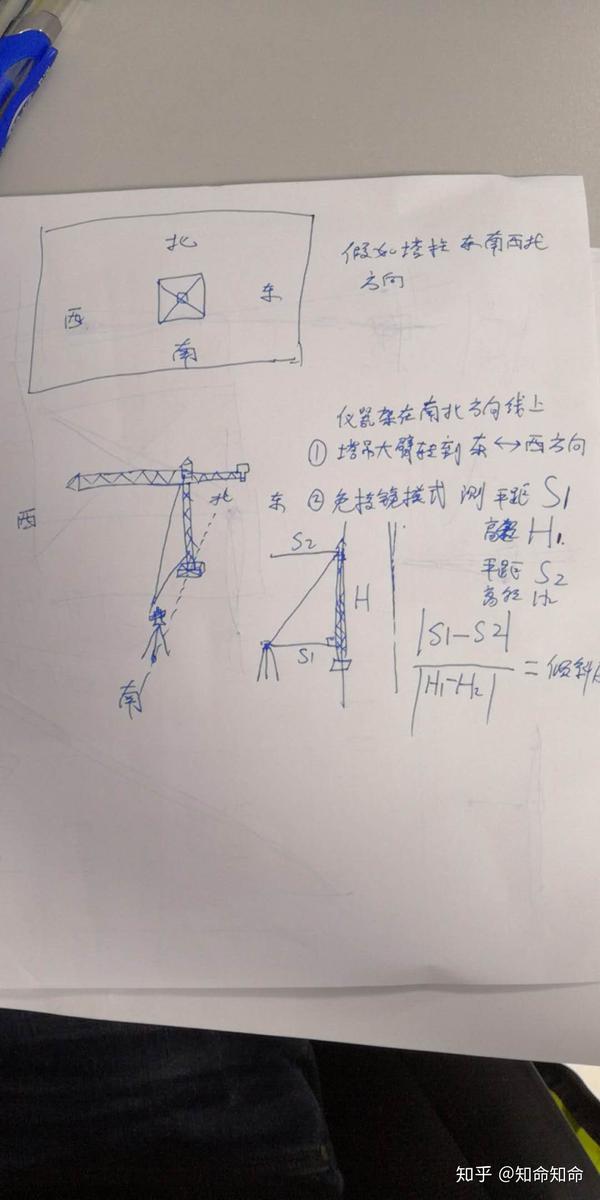 北
西
东
南
假如塔柱 东南西北
方向
仪器架在南北方向线上
① 塔吊大臂转到东↔西方向
② 免棱镜模式 测 平距 S1
高程 H1.
平距 S2
高程 H2
|S1-S2|
|H1-H2|
= 倾斜度
北
东
西
南
S2
H
S1
知乎 @知命知命